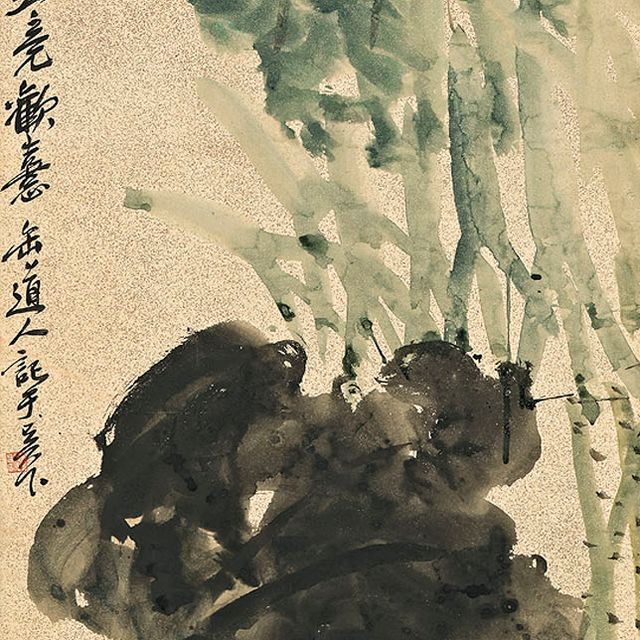 竟歡喜缶道人記于吳下